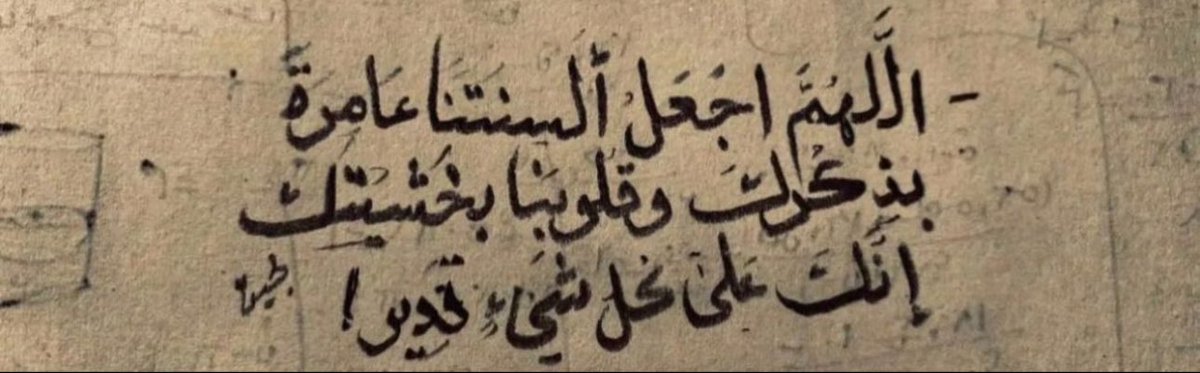 - اللَّهُمَّ اجْعَلْ ألسِنَتَنَا عَامِرَةً
بِذِكْرِكَ وقلوبنا بخَشْيَتِكَ
إنَّكَ عَلَىٰ كل شَيْءٍ قَدِير !